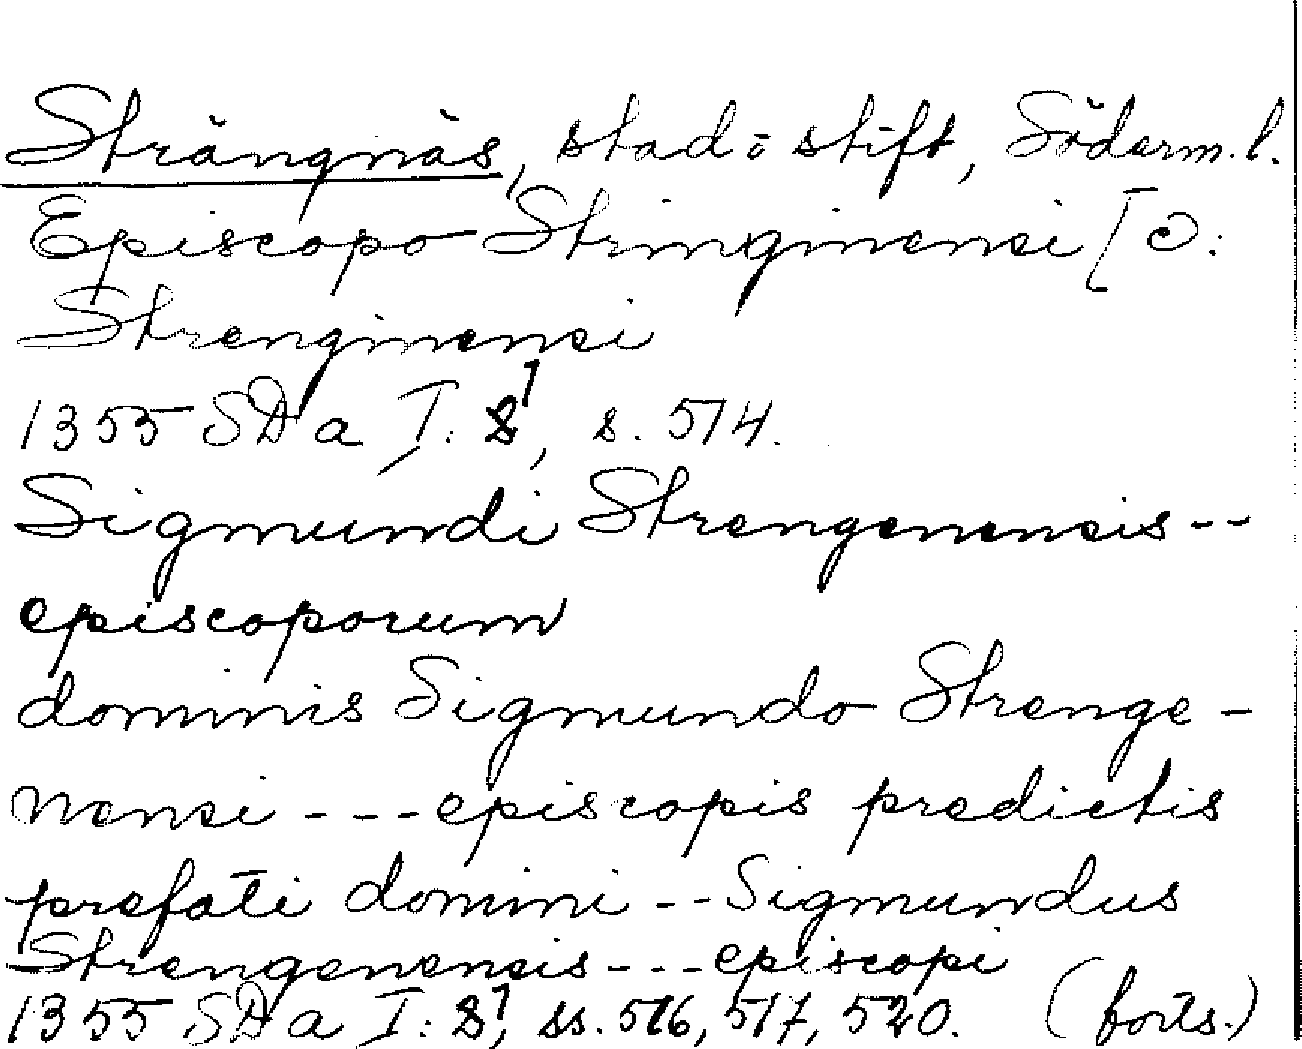 Strängnäs, stad o stift, Söderm.l.
Episcopo Stringinensi [ɔ:
Strenginensi
1355 SDa I:8¹, s. 514.
Sigmundi Strengenensis--
episcoporum
dominis Sigmundo Strenge-
nensi --- episcopis predictis
prefati domini -- Sigmundus
Strengenensis --- episcopi
1355 SDa I:8¹, ss. 516, 517, 520. (forts.)